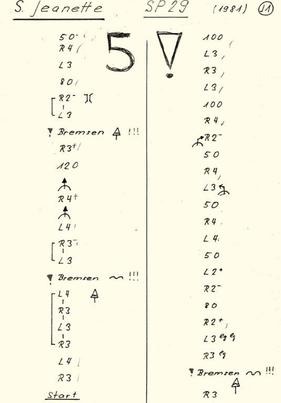 S. Jeanette SP 29 (1981) J1
5 !
50
R4
L3
80
R2-
L3
! Bremsen !!!
R3+
120
R4+
L4
R3-
L3
! Bremsen !!!
L4
R3
L3
R3
L4
R3
Start
100
L3
R3
L3
100
R4
R2-
50
R4
L3
50
R4
L4
50
L2+
R2-
80
R2+
L3
R3
! Bremsen !!!
R3